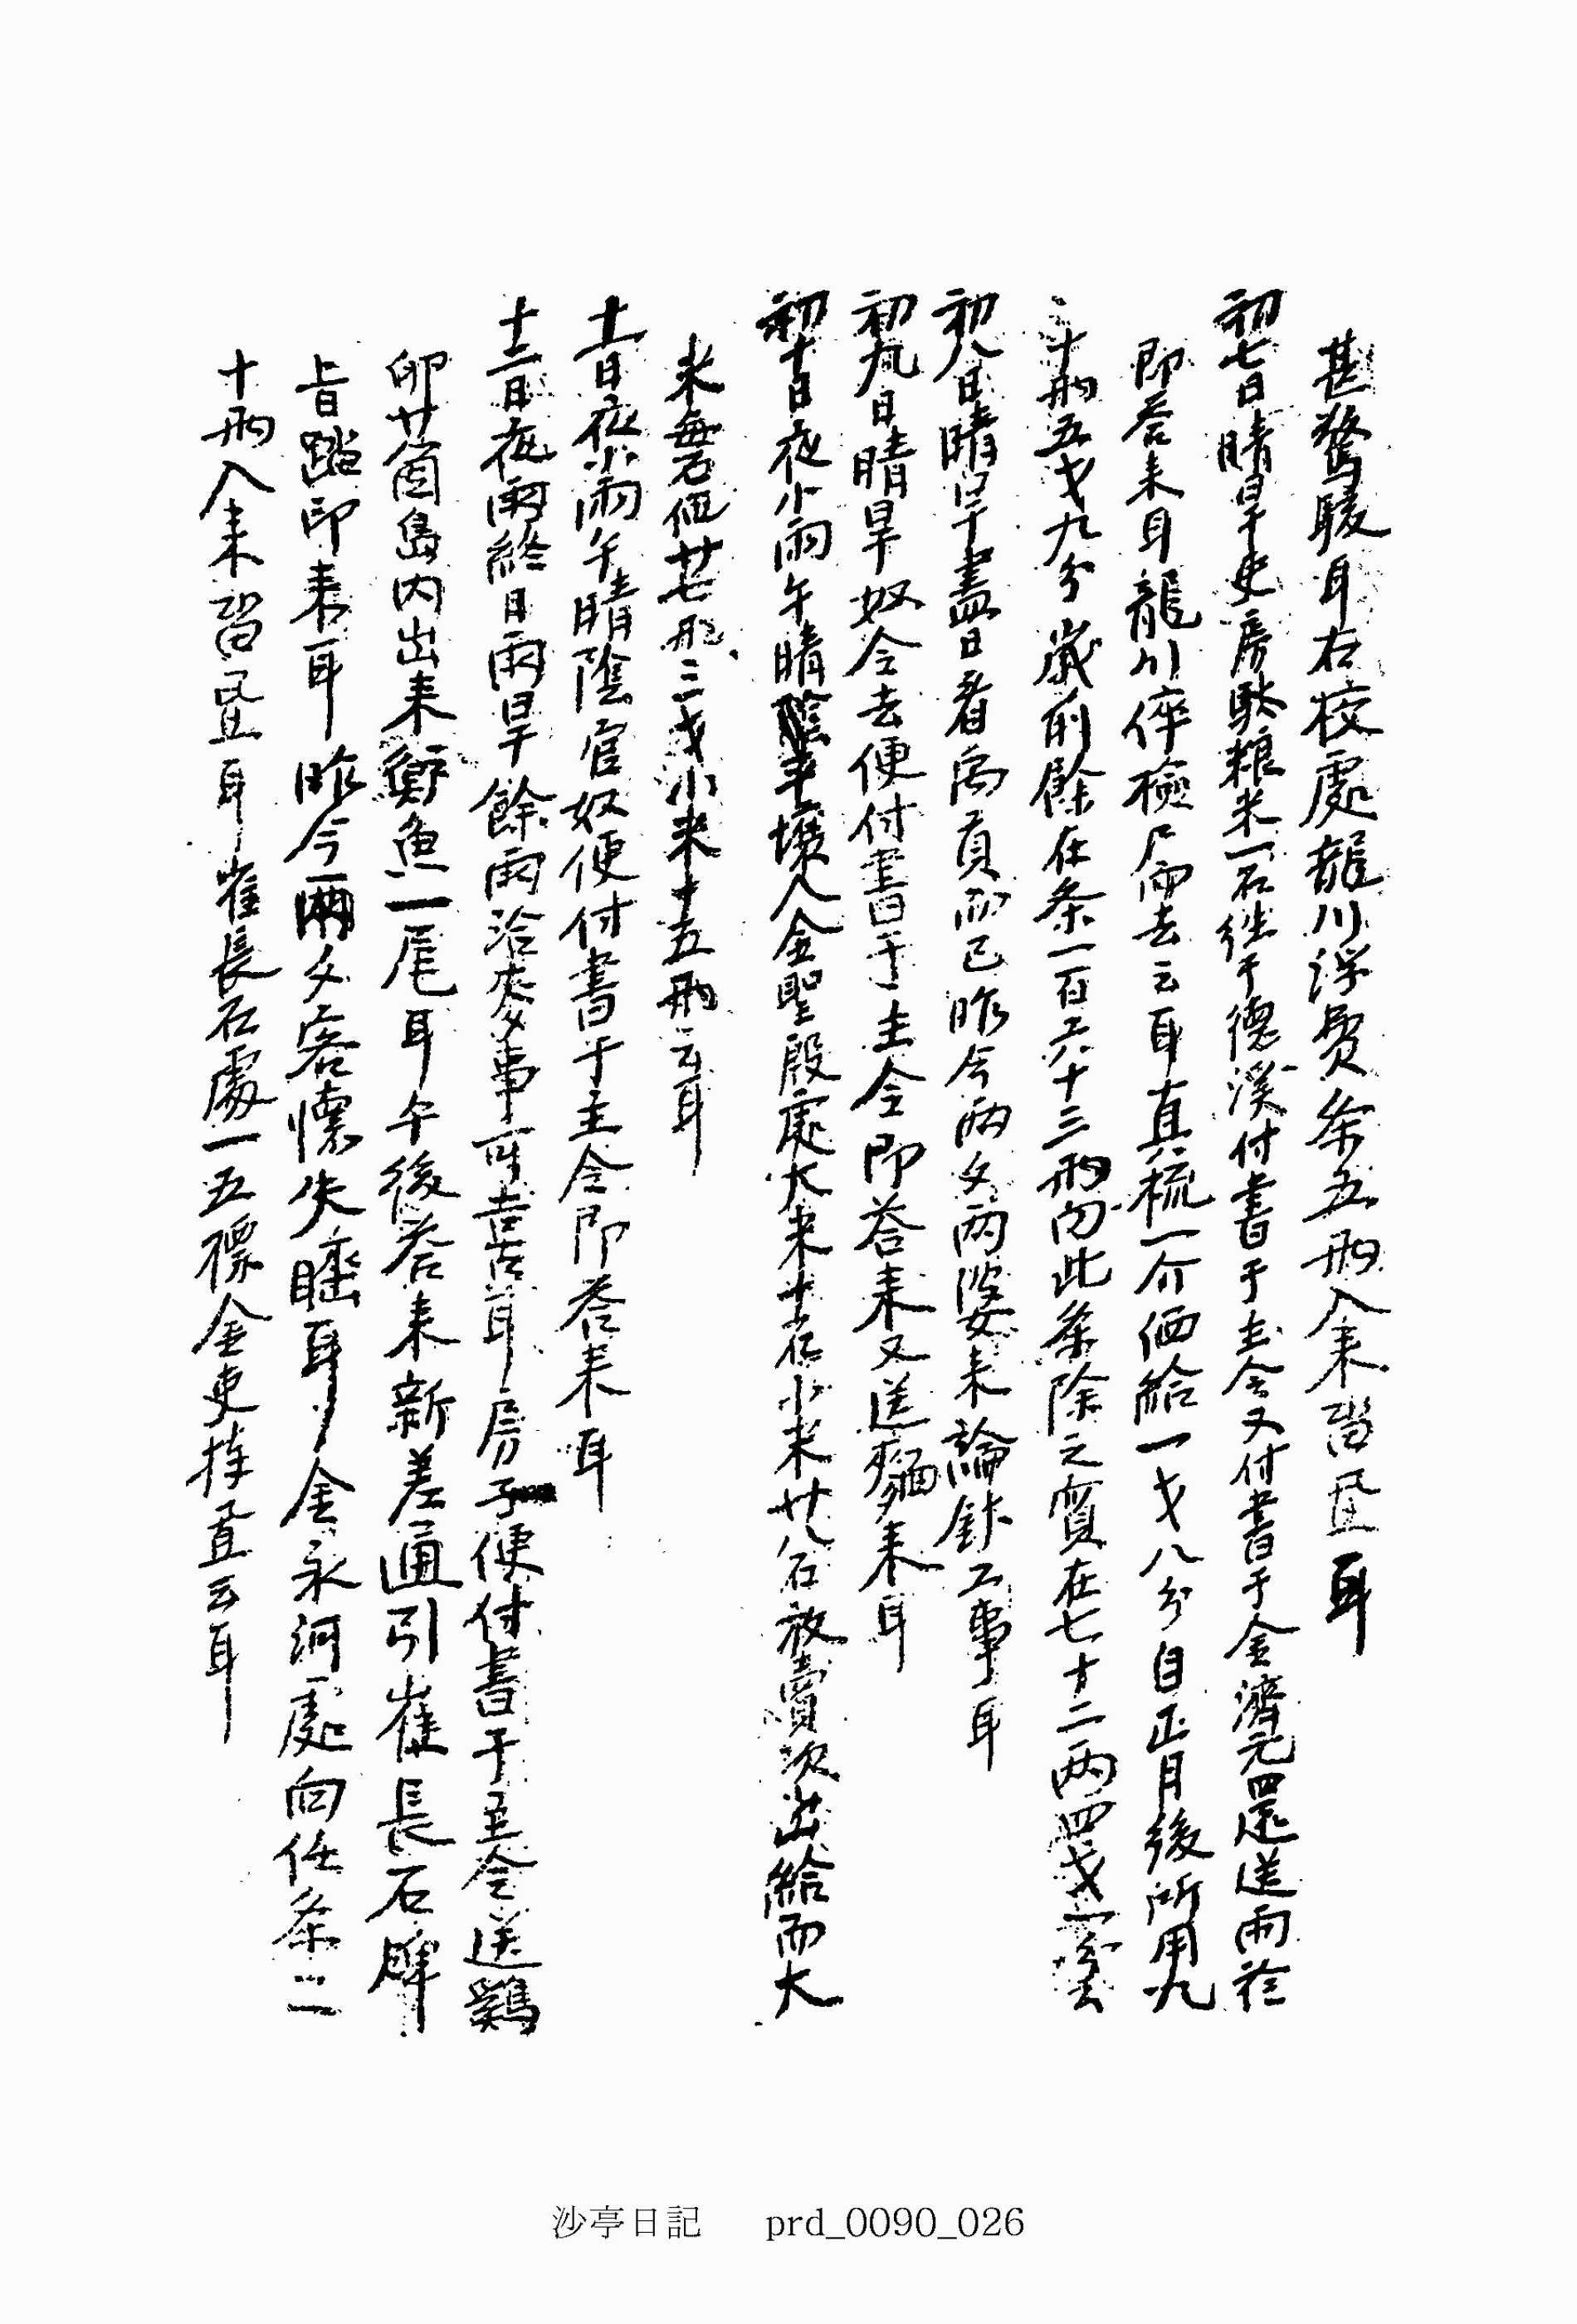 甚驚駭耳右校處龍川浮費条五兩入来留置耳
初七日晴旱史房駄粮米一石继于德溪付書于主令又付書于金濟元還送而於
即答来耳龍川倅檢尸而去云耳真梳一介価給一戈八分自正月後所用九
十兩五戈九分歲前餘在条一百六十三兩內此条除之實在七十二兩四戈一分云
初八日晴旱盡日看高頁而已昨今兩夕兩婆来論針工事耳
初九日晴旱奴令去便付書于主令即答来又送麵来耳
初十日夜小雨午晴陰平壤人金聖殷處大米十石小米廿八石放賣次出給而大
米每石価廿七兩三戈小米十五兩云耳
十一日夜小雨午晴陰官奴便付書于主令即答来耳
十二日夜雨終日雨旱餘雨洽麥事可喜耳房子便付書于主令送鷄
卵廿箇島內出来魚一尾耳午後答来新差通引崔長石牌
旨踏印来耳昨今兩夕客懷失睡耳金永河處向任条二
十兩入来留置耳崔長石處一五標金吏捧置云耳
沙亭日記 prd_0090_026